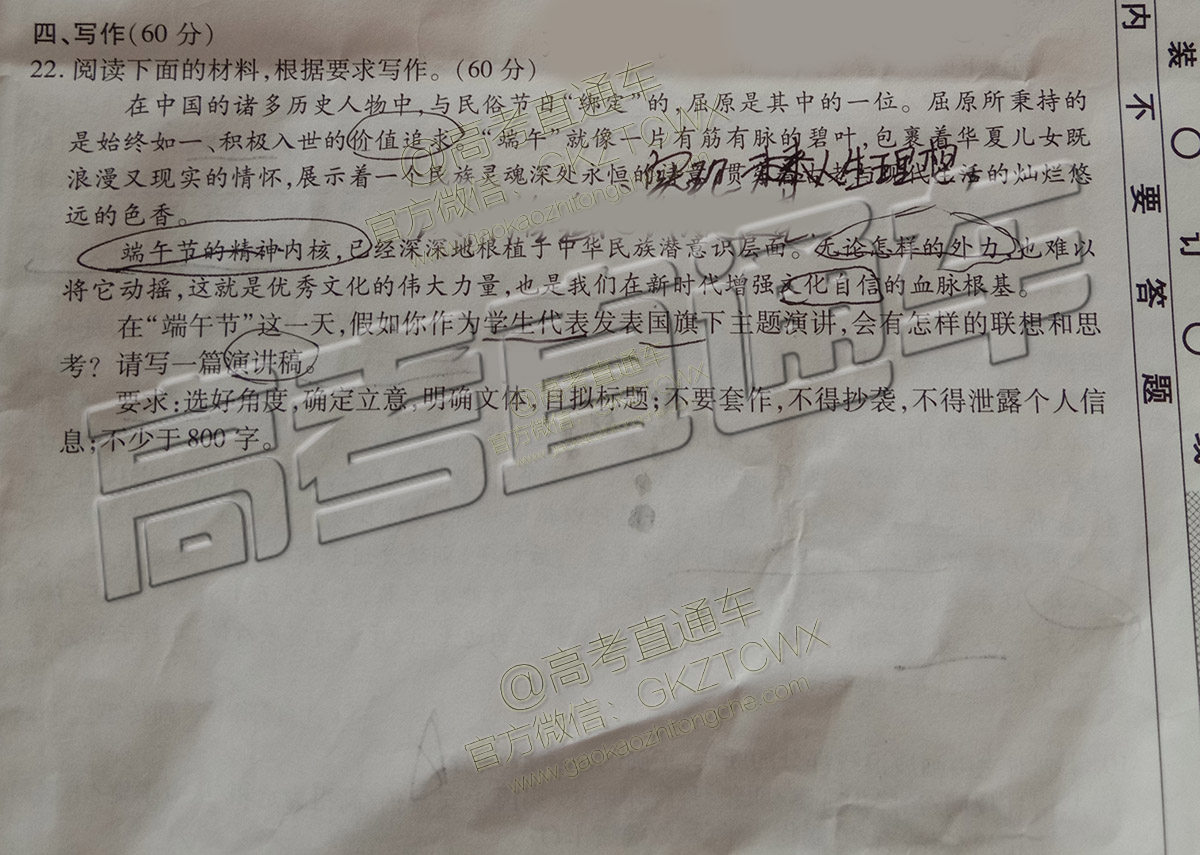 四、写作(60 分)
22. 阅读下面的材料,根据要求写作。(60 分)
在中国的诸多历史人物中,与民俗节日“绑定”的,屈原是其中的一位。屈原所秉持的
是始终如一、积极入世的价值追求。“端午”就像一片有筋有脉的碧叶,包裹着华夏儿女既
浪漫又现实的情怀,展示着一个民族灵魂深处永恒的 代生活的灿烂悠
人生理想
远的色香。
端午节的精神内核,已经深深地根植于中华民族潜意识层面。无论怎样的外力,也难以
将它动摇,这就是优秀文化的伟大力量,也是我们在新时代增强文化自信的血脉根基。
在“端午节”这一天,假如你作为学生代表发表国旗下主题演讲,会有怎样的联想和思
考?请写一篇演讲稿。
要求:选好角度,确定立意,明确文体,自拟标题;不要套作,不得抄袭,不得泄露个人信
息;不少于 800 字。
内不要答题
装订线
高考直通车
@高考直通车
官方微信:GKZTCWX
www.gaokaozhitongche.com
@高考直通车
官方微信:GKZTCWX
www.gaokaozhitongche.com
@高考直通车
官方微信:GKZTCWX
www.gaokaozhitongche.com